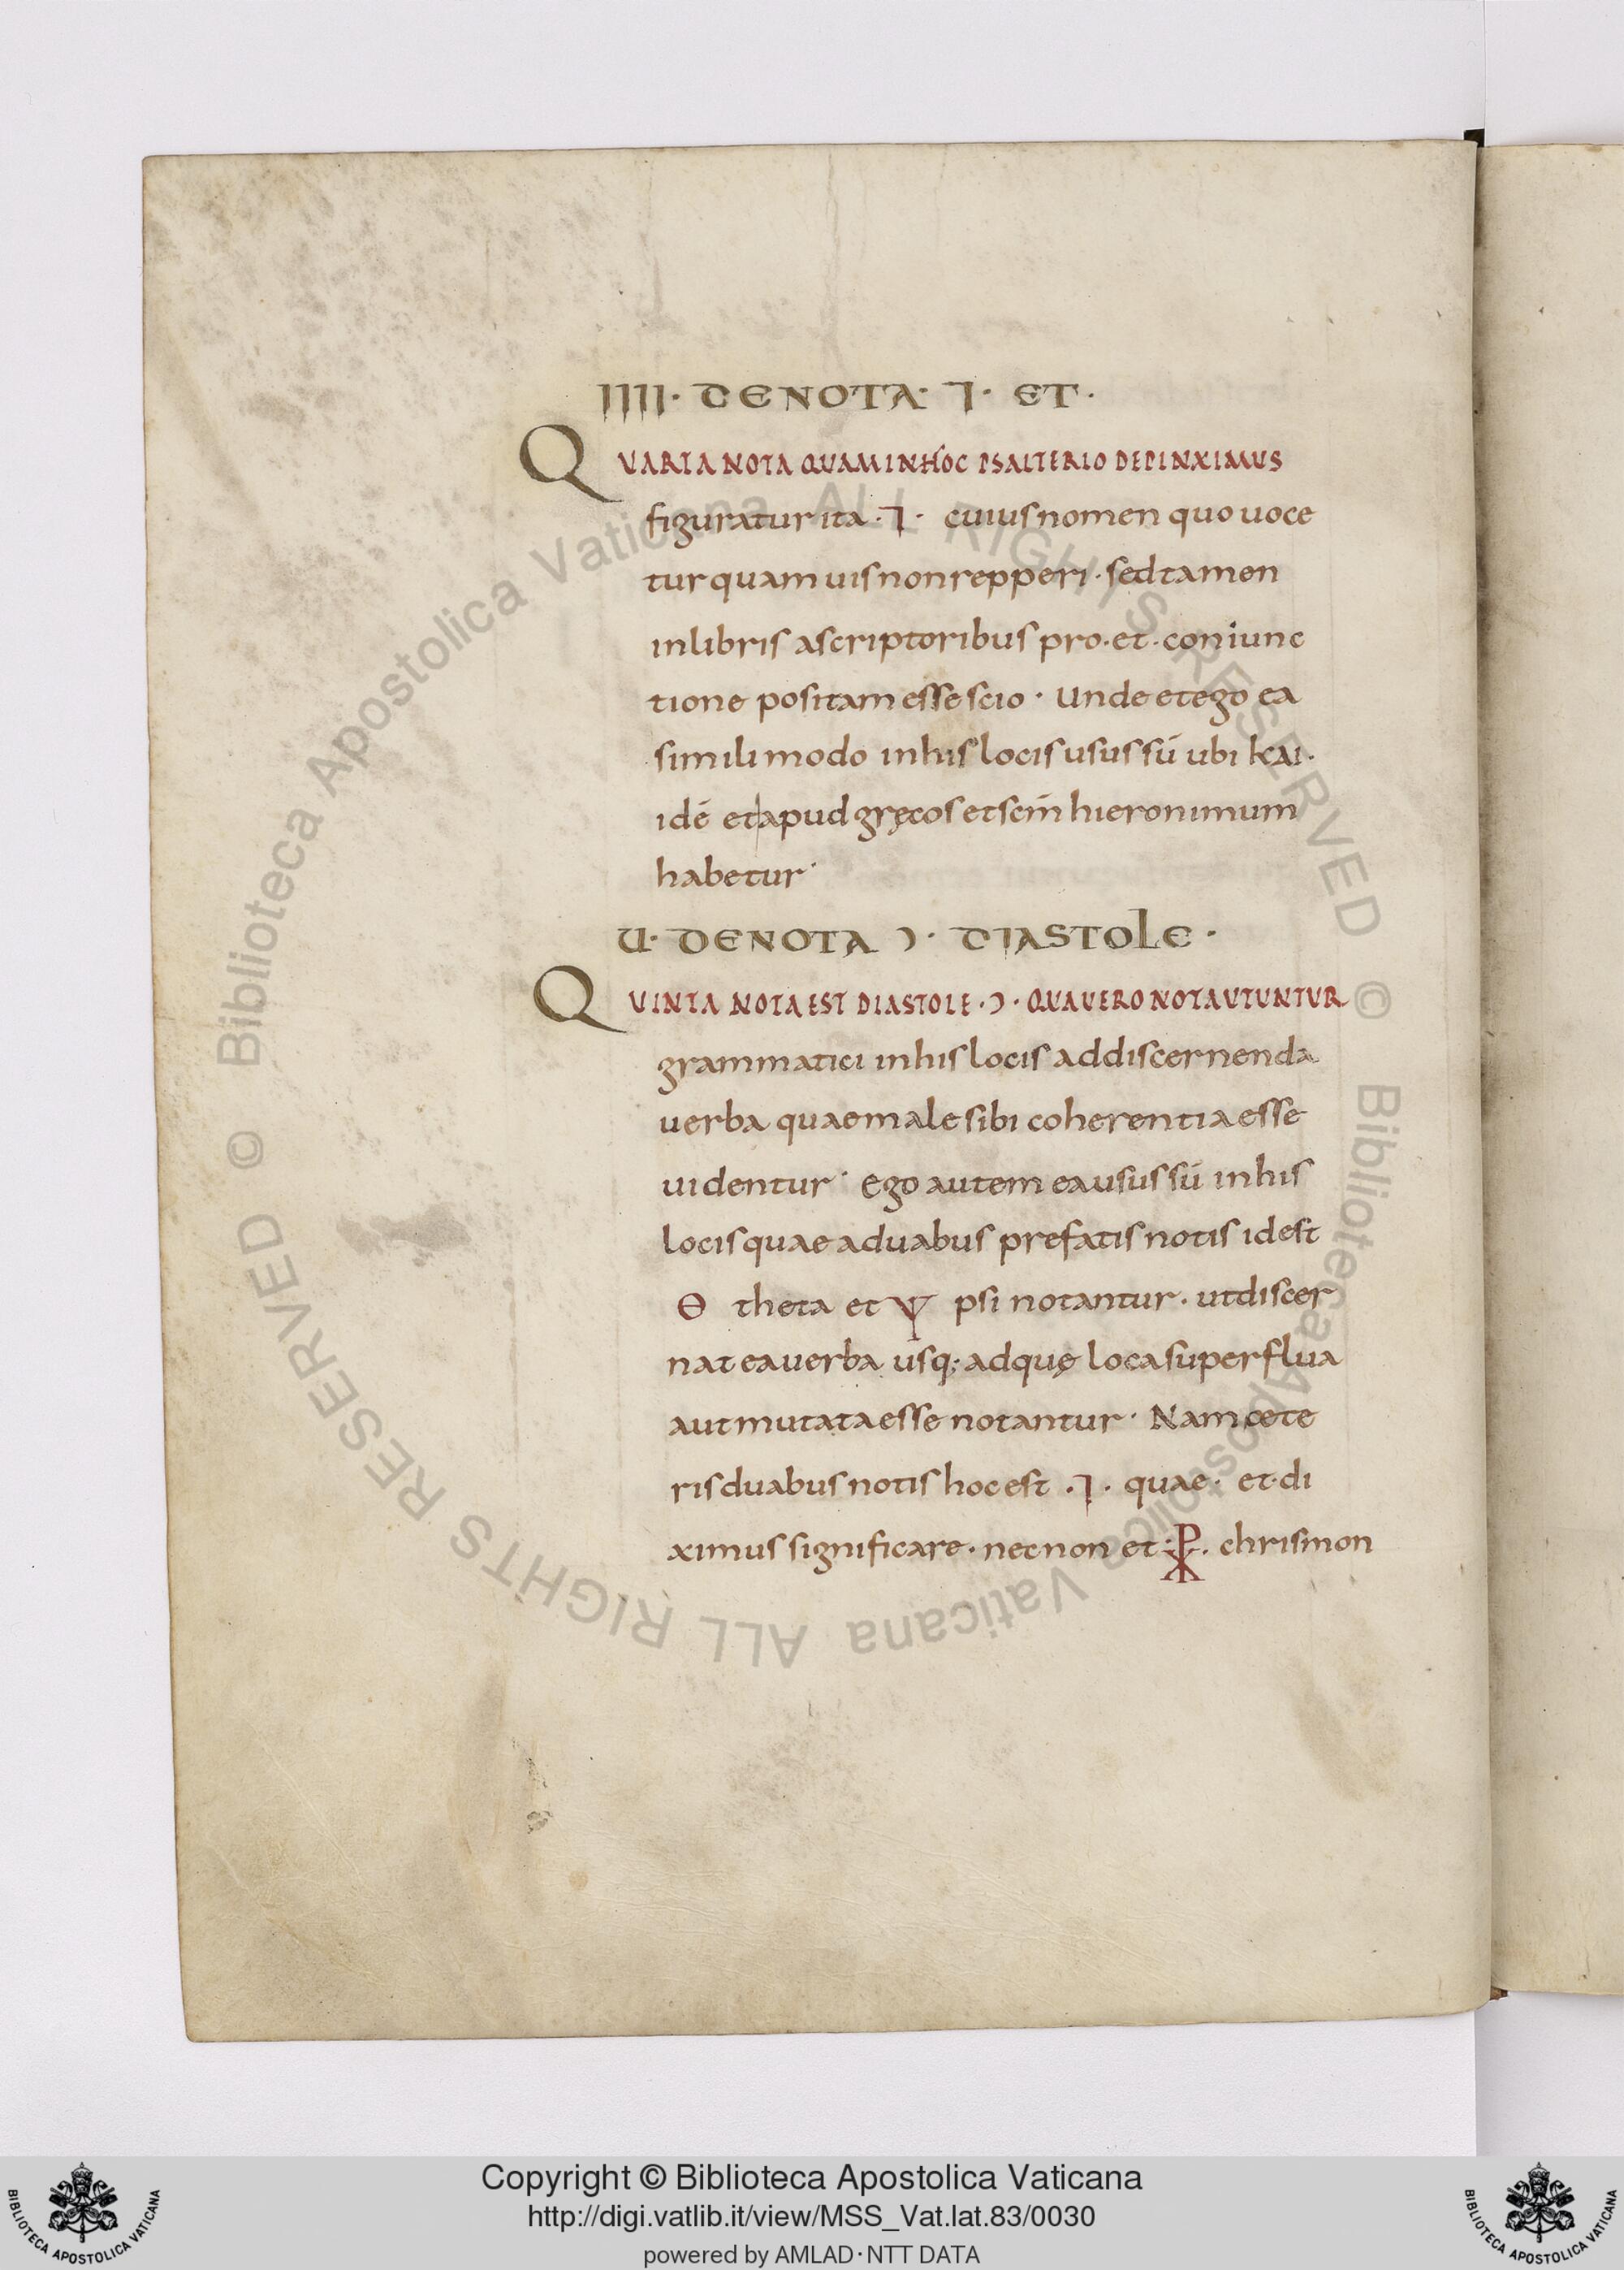 IIII· DE NOTA· ⁊· ET·
QUARTA NOTA QUAM IN HOC PSALTERIO DEPINXIMUS
figuratur ita ·⁊· cuius nomen quo uoce
tur quamuis non repperi · sed tamen
in libris a scriptoribus pro · et · coniunc
tione positam esse scio · Unde et ego ea
simili modo in his locis usus sū ubi kai ·
idē et apud gręcos et scm̄ hieronimum
habetur ·
U· DE NOTA Ɔ · DIASTOLE ·
QUINTA NOTA EST DIASTOLE · Ɔ · QUA UERO NOTA UTUNTUR
grammatici in his locis ad discernenda
uerba quae male sibi coherentia esse
uidentur · Ego autem ea usus sū in his
locis quae a duabus prefatis notis id est
Θ theta et Ψ psi notantur · ut discer
nat ea uerba usq; adquę loca superflua
aut mutata esse notantur · Nam cete
ris duabus notis hoc est ·⁊· quae · et · di
ximus significare · necnon et · ⳩ · chrismon
Biblioteca Apostolica Vaticana ALL RIGHTS RESERVED © Biblioteca Apostolica Vaticana ALL RIGHTS RESERVED ©
Copyright © Biblioteca Apostolica Vaticana
http://digi.vatlib.it/view/MSS_Vat.lat.83/0030
powered by AMLAD·NTT DATA
BIBLIOTECA APOSTOLICA VATICANA
BIBLIOTECA APOSTOLICA VATICANA